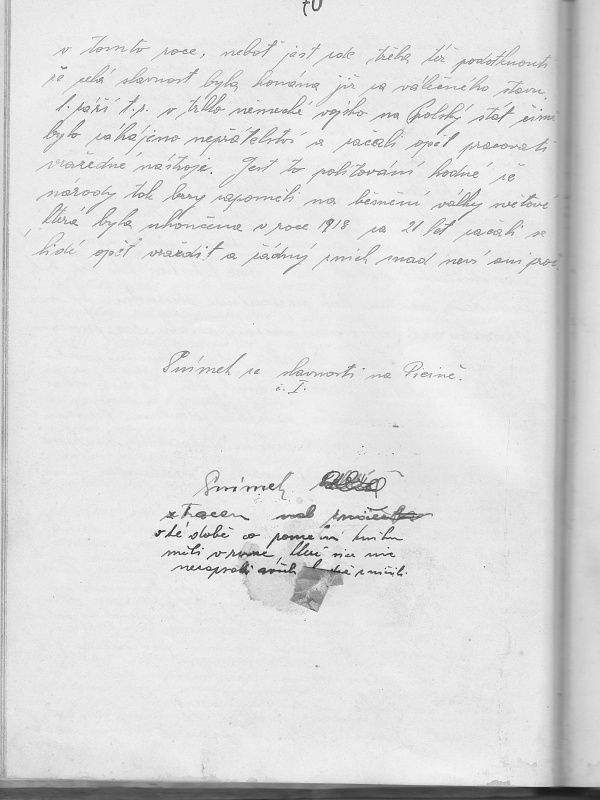 70
v tomto roce, neboť jest pak třeba též podotknouti
že celá slavnost byla konána již za válečného stavu,
1. září t.r. v trhlo německé vojsko na Polský stát čímž
bylo zahájeno nepřátelství a začali opět pracovati
vražedné nástroje. Jest to politování hodné že
národy tak brzy zapoměli na běsnění války světové
která byla ukončena v roce 1918 za 21 let začali se
lidé opět vražditi a žádný z nich snad neví ani proč.
Snímek ze slavnosti na Picině.
č. I.
Snímek
ztracen
v té době co pomezní knihu
měli v ruce, kteří více nic
nezapsali